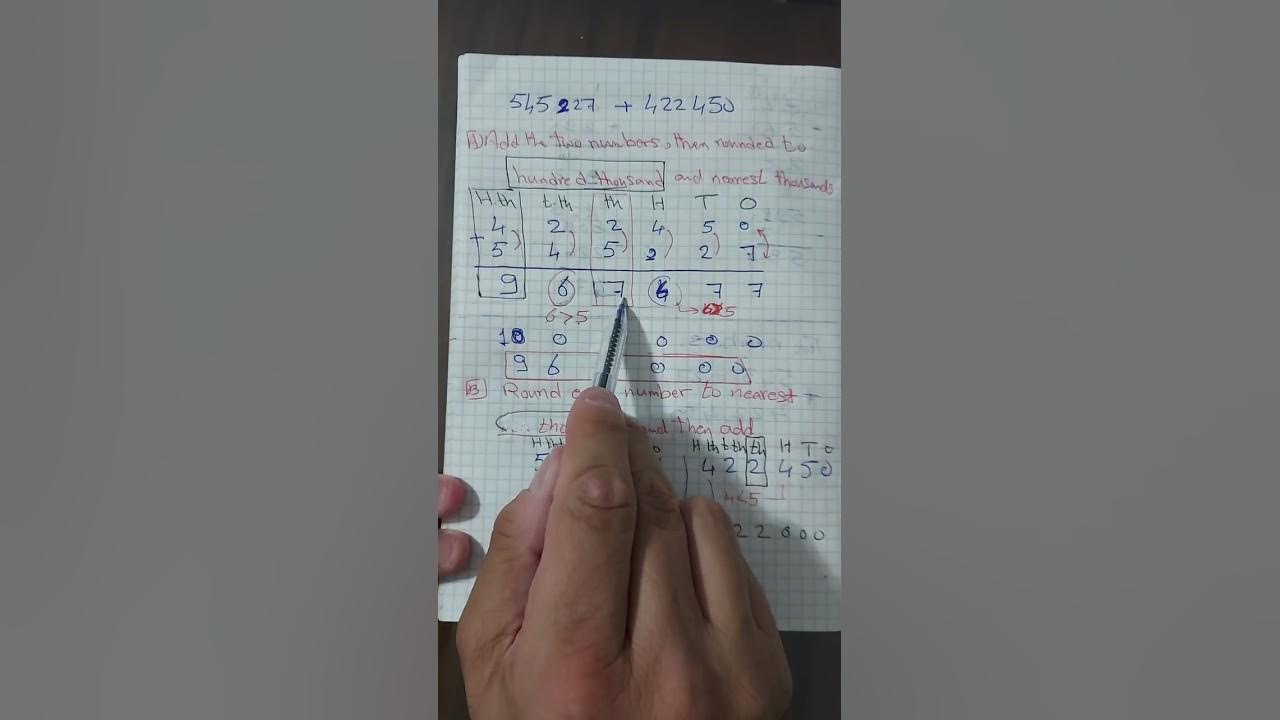 545227 + 422450
A) Add the two numbers, then rounded to
hundred thousand and nearest thousands
H.th t.th th H T O
4 2 2 4 5 0
+ 5 4 5 2 2 7
9 6 7 6 7 7
6 > 5
10 0 0 0 0
9 6 0 0 0
B Round number to nearest
and then add
H.th t.th th H T O
5 4 2 2 4 5 0
4 < 5
2 2 0 0 0